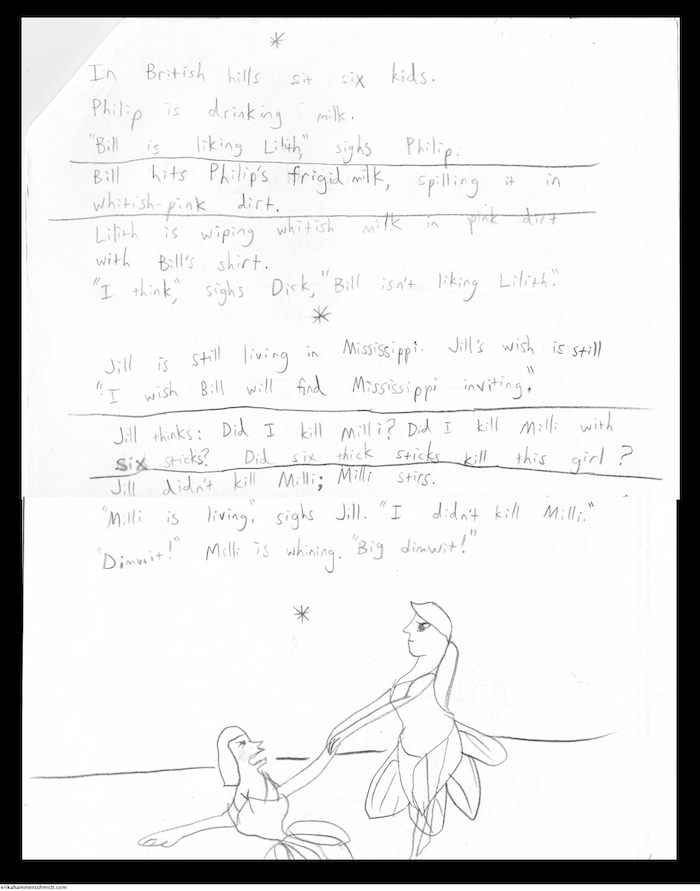 *
In British hills sit six kids.
Philip is drinking milk.
"Bill is liking Lilith," sighs Philip.
Bill hits Philip's frigid milk, spilling it in
whitish-pink dirt.
Lilith is wiping whitish milk in pink dirt
with Bill's shirt.
"I think," sighs Dick, "Bill isn't liking Lilith."
*
Jill is still living in Mississippi. Jill's wish is still
"I wish Bill will find Mississippi inviting."
Jill thinks: Did I kill Milli? Did I kill Milli with
six sticks? Did six thick sticks kill this girl?
Jill didn't kill Milli; Milli stirs.
"Milli is living," sighs Jill. "I didn't kill Milli."
"Dimwit!" Milli is whining. "Big dimwit!"
*
erikahammerschmidt.com